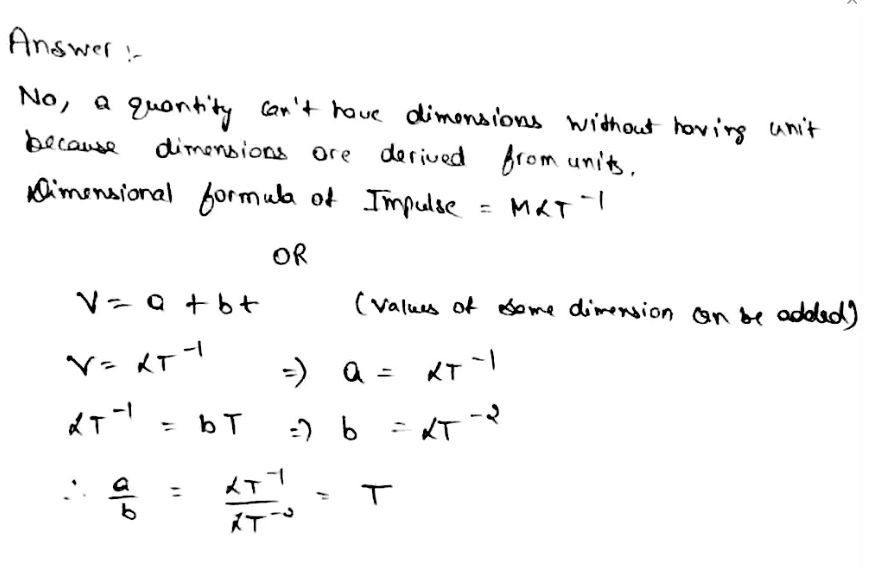 Answer :-
No, a quantity can't have dimensions without having unit
because dimensions are derived from units.
Dimensional formula of Impulse = MLT⁻¹
OR
V = a + bt (values of same dimension can be added)
V = LT⁻¹ => a = LT⁻¹
LT⁻¹ = bT => b = LT⁻²
∴ a/b = LT⁻¹/LT⁻² = T